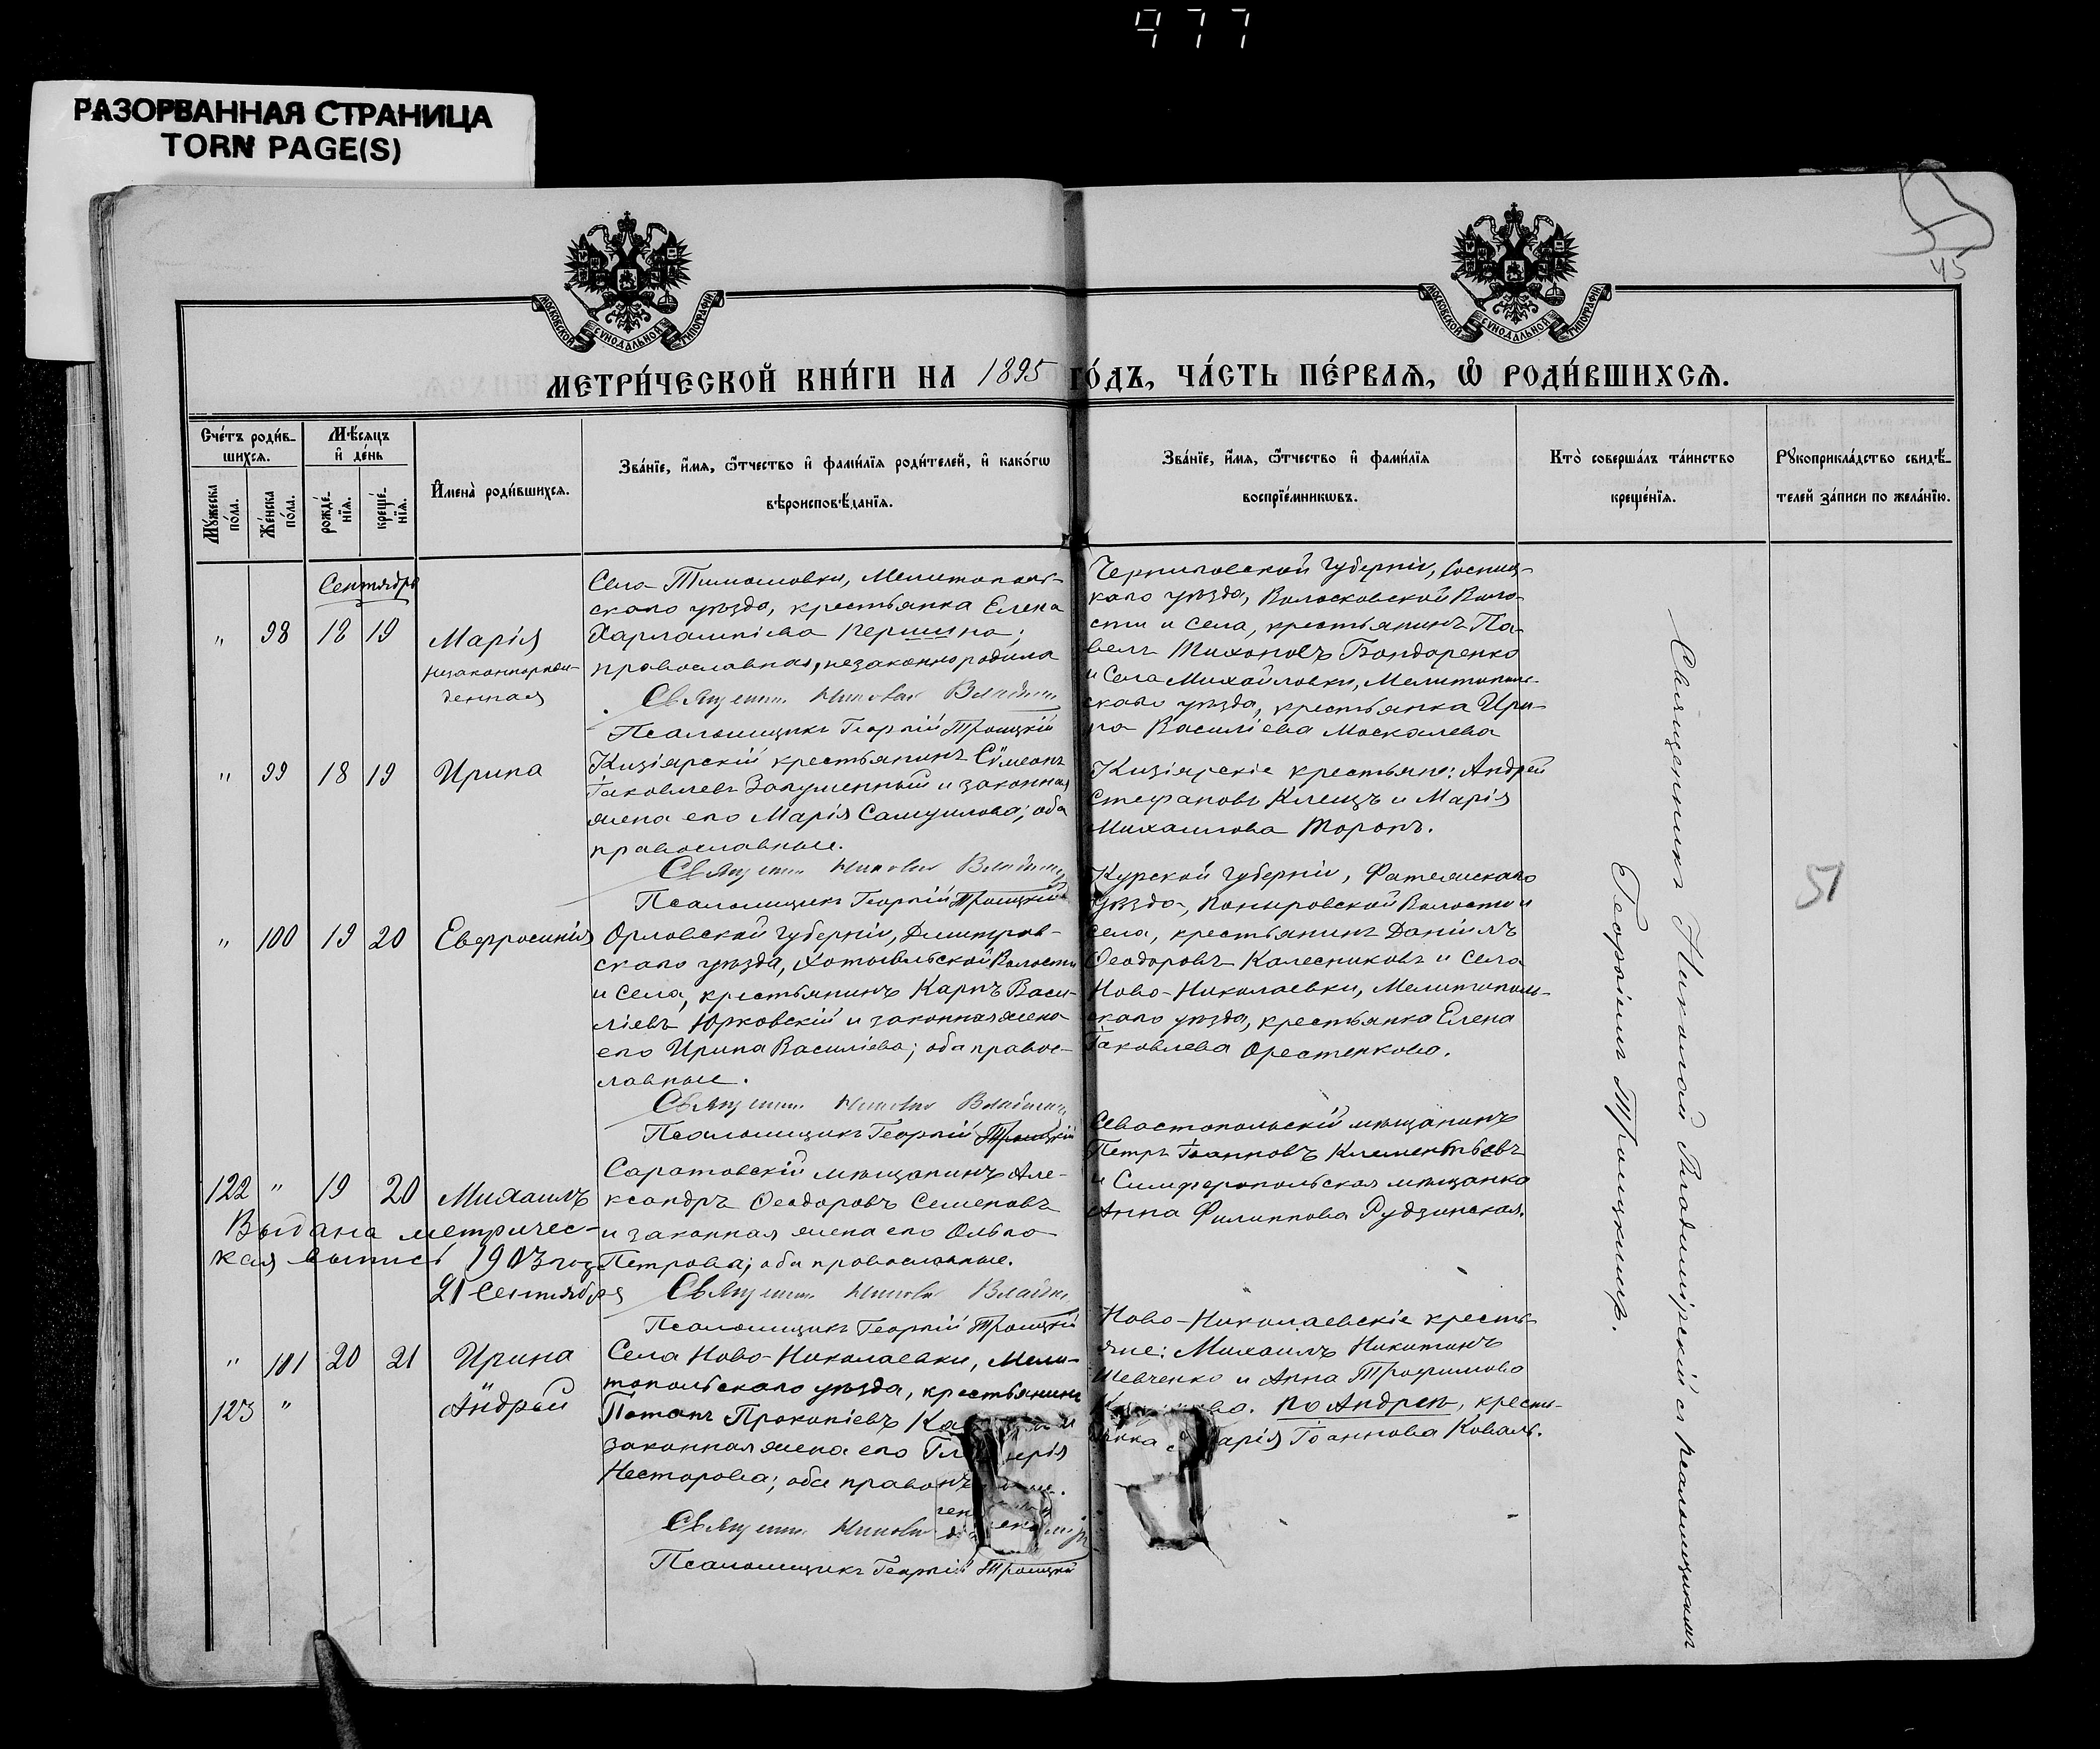 477
РАЗОРВАННАЯ СТРАНИЦА
TORN PAGE(S)
45
МОСКОВСКОЙ СУНОДАЛЬНОЙ ТИПОГРАФІИ
МОСКОВСКОЙ СУНОДАЛЬНОЙ ТИПОГРАФІИ
МЕТРИ́ЧЕСКОЙ КНИ́ГИ НА 1895 ГО́ДЪ, ЧА́СТЬ ПЕ́РВАѦ, Ѡ РОДИ́ВШИХСѦ.
Сче́тъ роди́в-
шихсѧ.
Мꙋжеска по́ла.
Же́нска по́ла.
Мѣ́сяцъ
и҆ де́нь
рожде́-
нїѧ.
креще́-
нїѧ.
И҆мена̀ роди́вшихсѧ.
Зва́нїе, и҆́мѧ, ѻ҆́тчество и҆ фами́лїѧ роди́телей, и҆ како́гѡ
вѣроисповѣ́данїѧ.
Зва́нїе, и҆́мѧ, ѻ҆́тчество и҆ фами́лїѧ
воспрїе́мникѡвъ.
Кто̀ соверша́лъ та́инство
креще́нїѧ.
Рꙋкоприкла́дство свидѣ́-
телей за́писи по жела́нїю.
Сентябрь
" 98 18 19 Марія
незаконнорож-
денная
Села Тимошовки, Мелитополь-
скаго уѣзда, крестьянка Елена
Харлампіева Першина;
православная, незаконно родила
Священ. Николай Владим
Псаломщикъ Георгій Троицкій
Черниговской губерніи, Сосниц-
каго уѣзда, Волосковской Воло-
сти и села, крестьянинъ Па-
велъ Тихоновъ Бондаренко
и Села Михайловки, Мелитополь-
скаго уѣзда, крестьянка Ири-
на Василіева Москалева
" 99 18 19 Ирина
Кизіярскій крестьянинъ Сѵмеонъ
Іаковлевъ и законная
жена его Марія Самуилова; оба
православные.
Священ. Николай Владим
Псаломщикъ Георгій Троицкій
Кизіярскіе крестьяне: Андрей
Стефановъ Клещъ и Марія
Михаилова Торопъ.
" 100 19 20 Евфросинія
Орловской губерніи, Дмитров-
скаго уѣзда, Волости
и Села, крестьянинъ Карпъ Васи-
ліевъ Юрковскій и законная жена
его Ирина Василіева; оба правос-
лавные.
Священ. Николай Владим
Псаломщикъ Георгій Троицкій
Курской губерніи, Фатежскаго
уѣзда, Поныровской Волости и
села, крестьянинъ Даніилъ
Ѳеодоровъ Калесниковъ и Села
Ново-Николаевки, Мелитополь-
скаго уѣзда, крестьянка Елена
Іаковлева Орестенкова.
122 " 19 20 Михаилъ
Саратовскій мѣщанинъ Але-
ксандръ Ѳеодоровъ Семеновъ
и законная жена его Ольга
Петрова; оба православные.
Выдана метричес-
кая выпись 1903 год
21 Сентября
Священ. Николай Владим
Псаломщикъ Георгій Троицкій
Севастопольскій мѣщанинъ
Петръ Іоанновъ Клементьевъ
и Симферопольская мѣщанка
Анна Филиппова Рудзинская.
" 101 20 21 Ирина
123 " Андрей
Села Ново-Николаевки, Мели-
топольскаго уѣзда, крестьянинъ
Потапъ Прокопіевъ и
законная жена его
Несторова; оба
Священ. Николай
Псаломщикъ Георгій Троицкій
Ново-Николаевскіе кресть-
яне: Михаилъ Никитинъ
Шевченко и Анна Трофимова
по Андреѣ, крестья-
нка Марія Іоаннова Коваль.
Священникъ Николай Владимірскій съ псаломщикомъ
Георгіемъ Троицкимъ.
51